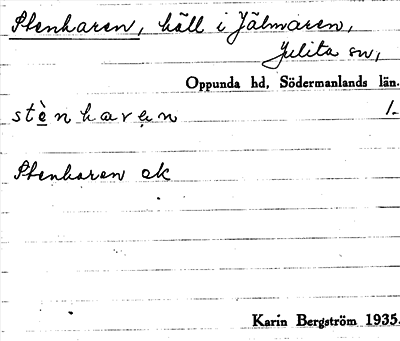 Stenharen, häll i Jälmaren,
Julita sn,
Oppunda hd, Södermanlands län.
stè̲nharạn 1.
Stenharen ek
Karin Bergström 1935.